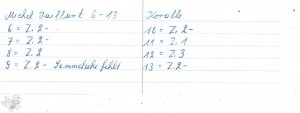 Michel Vaillant 6-13
6 = Z. 2-
7 = Z. 2-
8 = Z. 2
9 = Z. 2- Sammelecke fehlt
Koralle
10 = Z. 2-
11 = Z. 1
12 = Z. 3
13 = Z. 2-